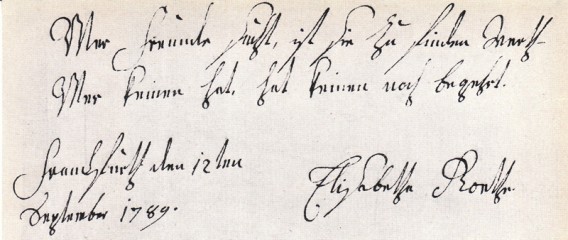 Wer Freunde sucht, ist sie zu finden werth
Wer keinen hat, hat keinen noch begehrt.
Franckfurth den 12ten
September 1789.
Elisabetha Roethe